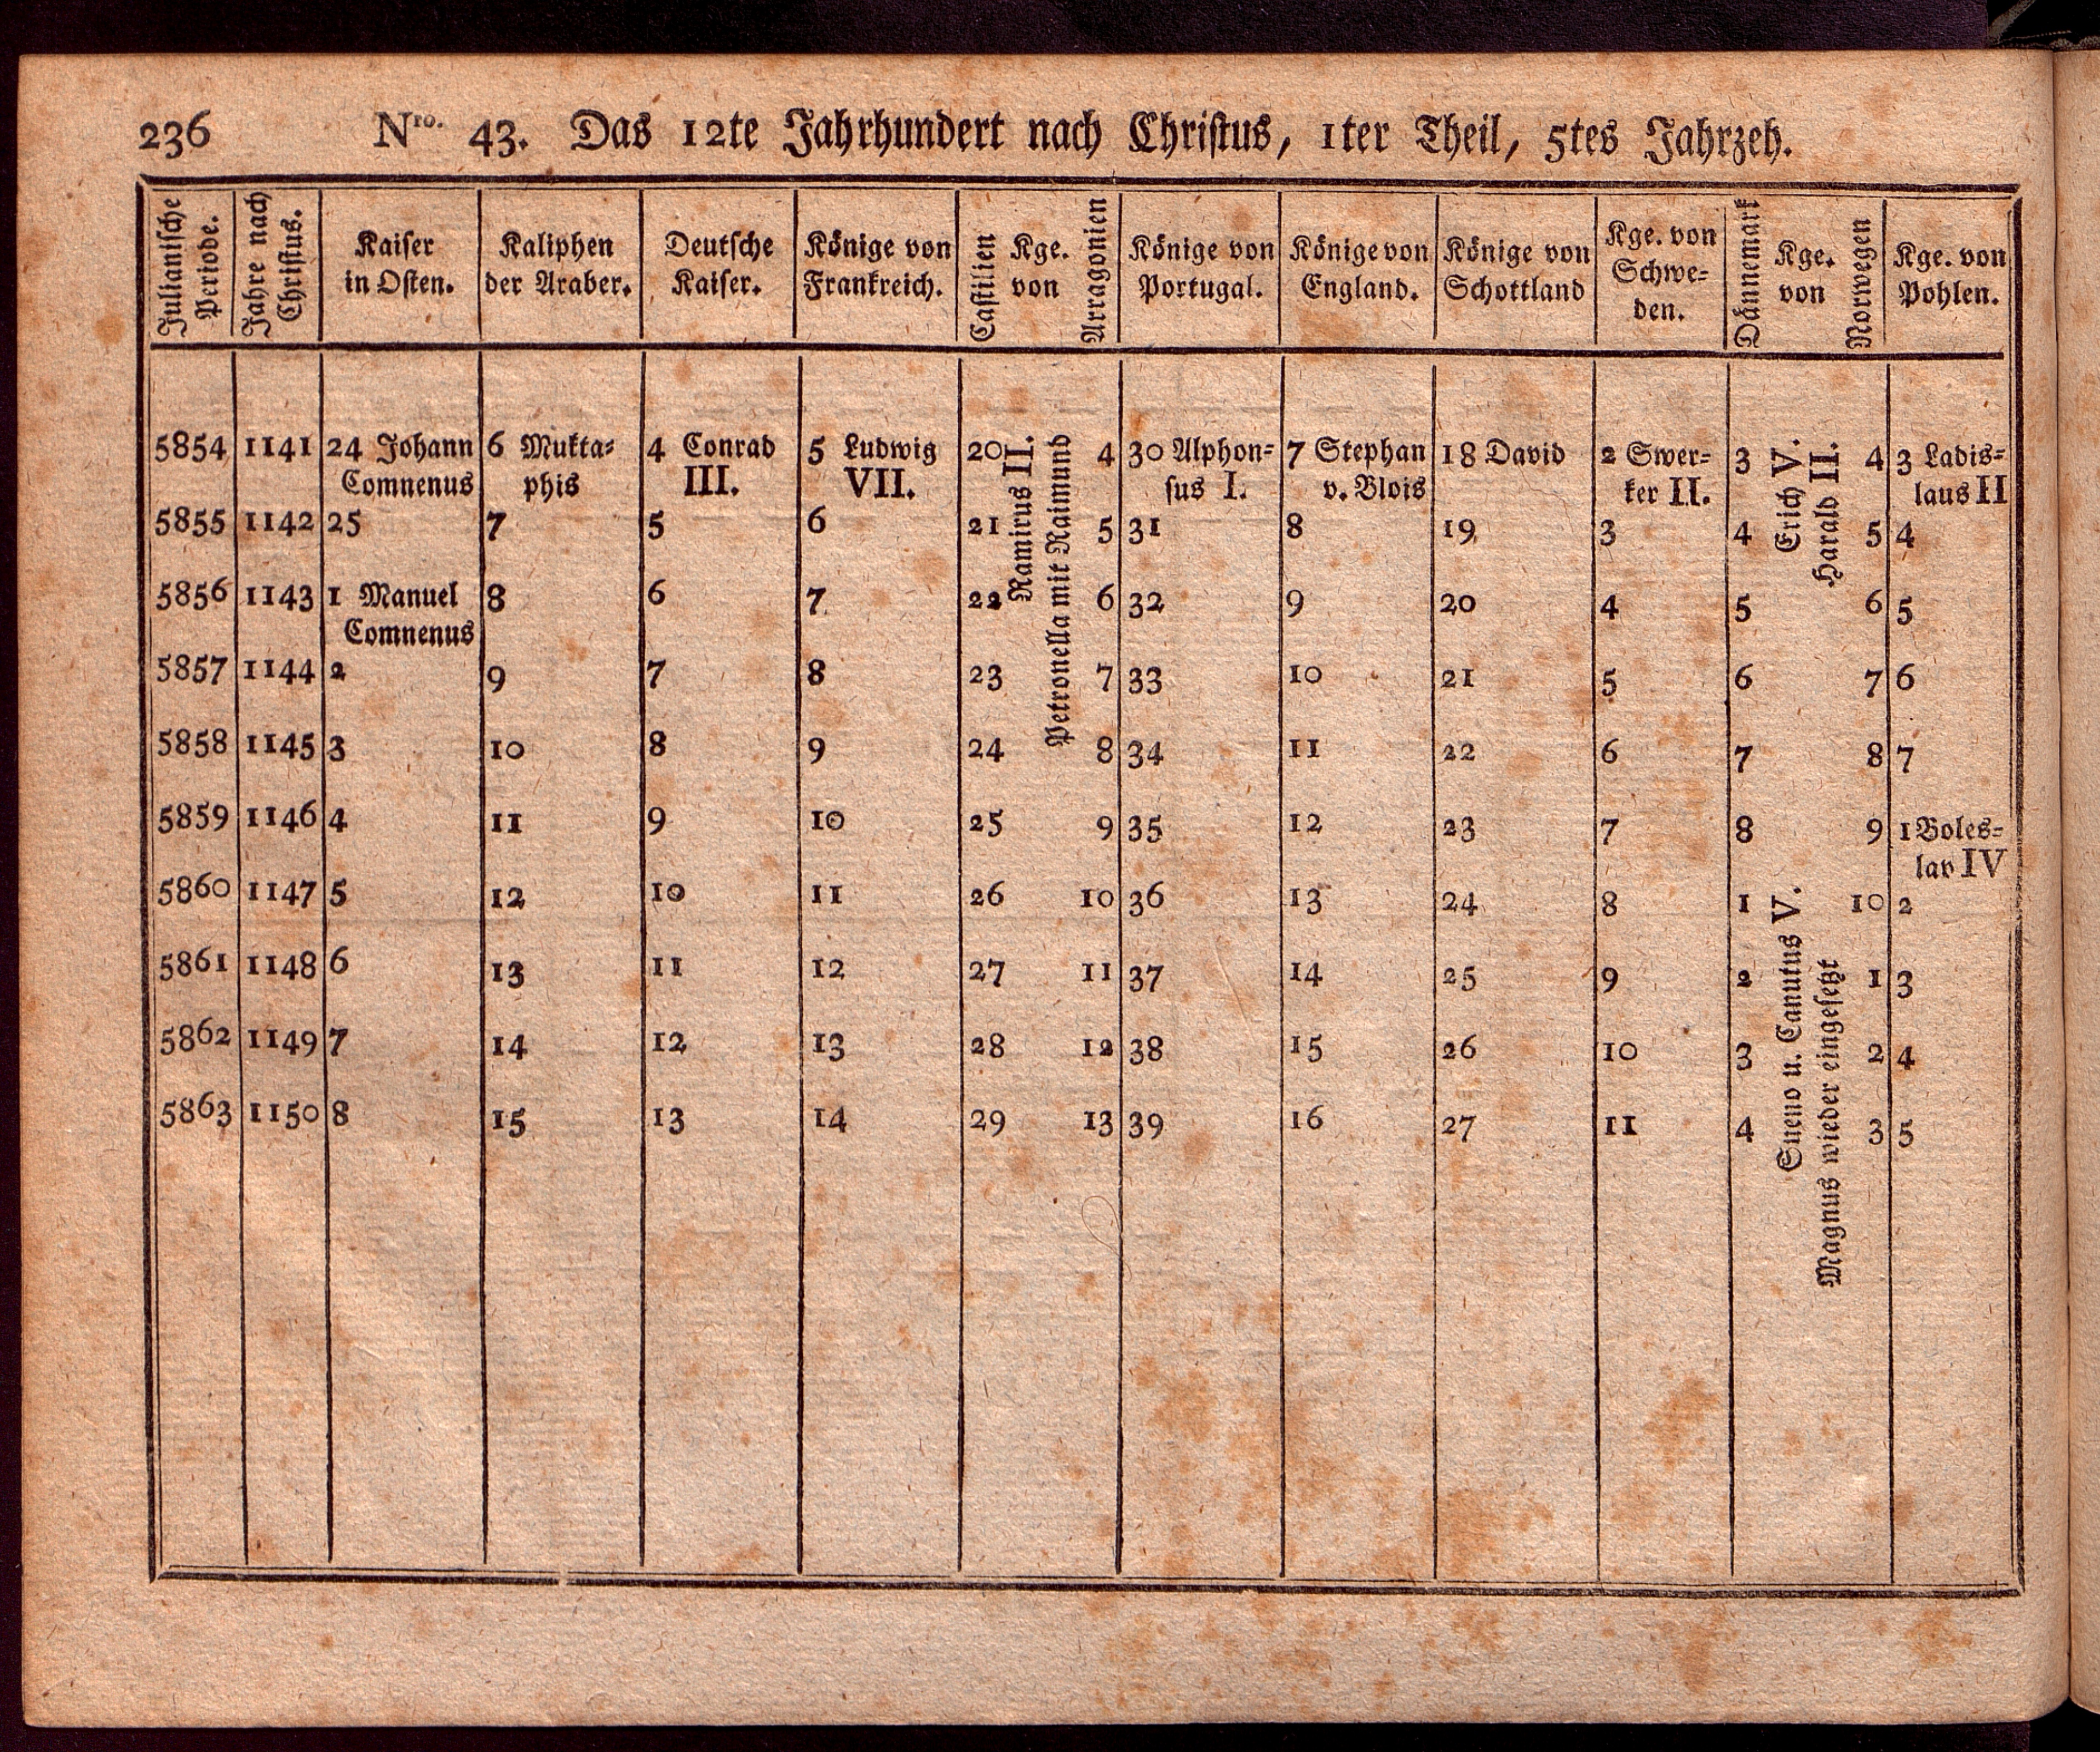 236 Nro. 43. Das 12te Jahrhundert nach Christus, 1ter Theil, 5tes Jahrzeh.
Julianische Periode. | Jahre nach Christus. | Kaiser in Osten. | Kaliphen der Araber. | Deutsche Kaiser. | Könige von Frankreich. | Castilien Kge. von Arragonien | Könige von Portugal. | Könige von England. | Könige von Schottland | Kge. von Schwe- den. | Dännemark Kge. von Norwegen | Kge. von Pohlen.
5854 | 1141 | 24 Johann Comnenus | 6 Mukta- phis | 4 Conrad III. | 5 Ludwig VII. | 20 Ramirus II. Petronella mit Raimund 4 | 30 Alphon- sus I. | 7 Stephan v. Blois | 18 David | 2 Swer- ker II. | 3 Erich V. Harald II. 4 | 3 Ladis- laus II
5855 | 1142 | 25 | 7 | 5 | 6 | 21 5 | 31 | 8 | 19 | 3 | 4 5 | 4
5856 | 1143 | 1 Manuel Comnenus | 8 | 6 | 7 | 22 6 | 32 | 9 | 20 | 4 | 5 6 | 5
5857 | 1144 | 2 | 9 | 7 | 8 | 23 7 | 33 | 10 | 21 | 5 | 6 7 | 6
5858 | 1145 | 3 | 10 | 8 | 9 | 24 8 | 34 | 11 | 22 | 6 | 7 8 | 7
5859 | 1146 | 4 | 11 | 9 | 10 | 25 9 | 35 | 12 | 23 | 7 | 8 9 | 1 Boles- lav IV
5860 | 1147 | 5 | 12 | 10 | 11 | 26 10 | 36 | 13 | 24 | 8 | 1 Sueno u. Canutus V. 10 | 2
5861 | 1148 | 6 | 13 | 11 | 12 | 27 11 | 37 | 14 | 25 | 9 | 2 Magnus wieder eingesetzt 1 | 3
5862 | 1149 | 7 | 14 | 12 | 13 | 28 12 | 38 | 15 | 26 | 10 | 3 2 | 4
5863 | 1150 | 8 | 15 | 13 | 14 | 29 13 | 39 | 16 | 27 | 11 | 4 3 | 5